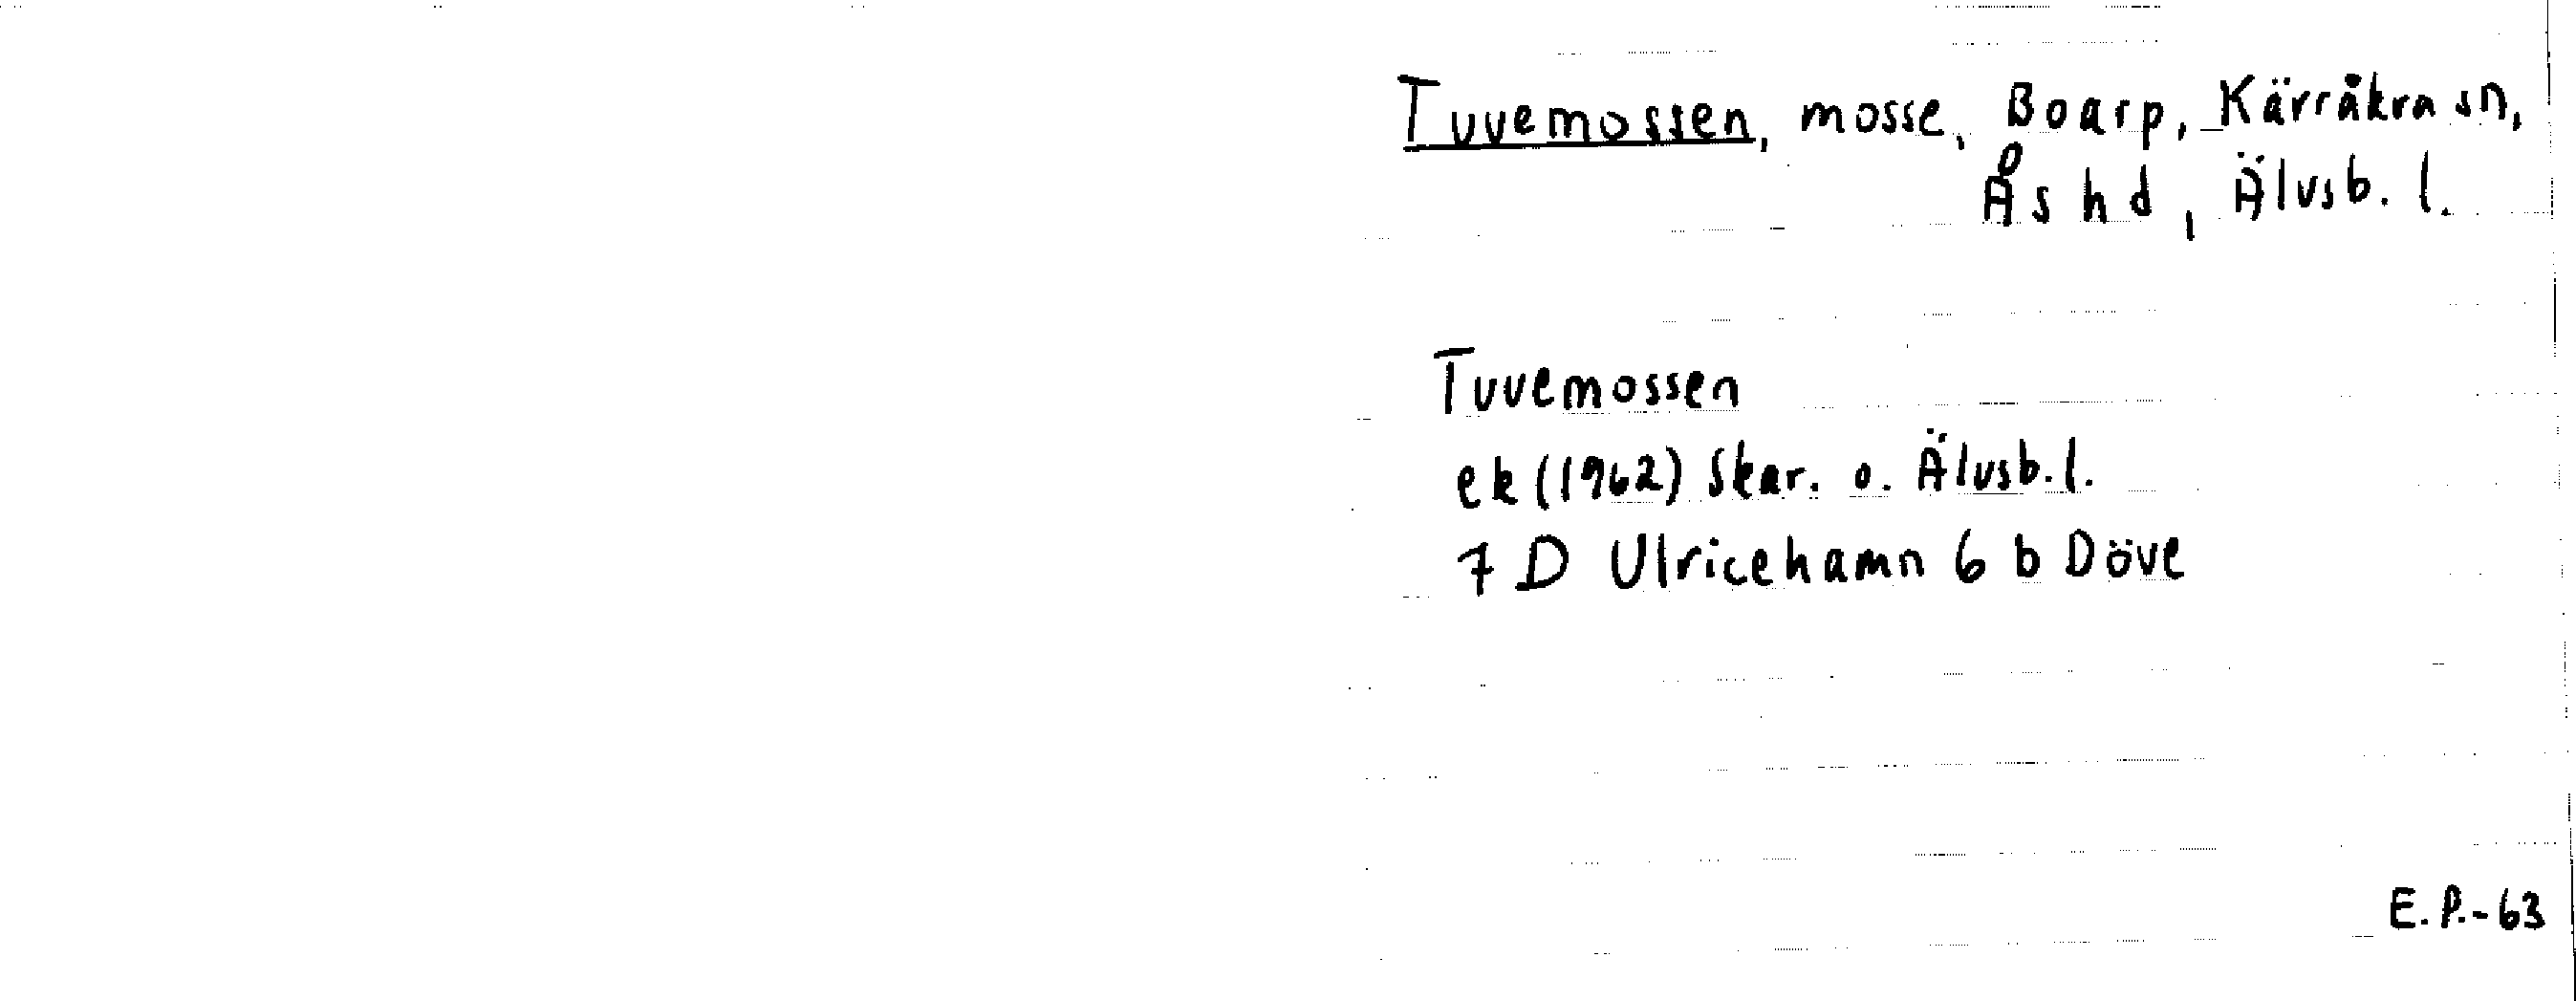 Tuvemossen, mosse, Boarp, Kärråkra sn,
Ås hd, Älvsb. l.
Tuvemossen
ek (1962) Skar. o. Älvsb. l.
7 D Ulricehamn 6 b Döve
E. P. - 63